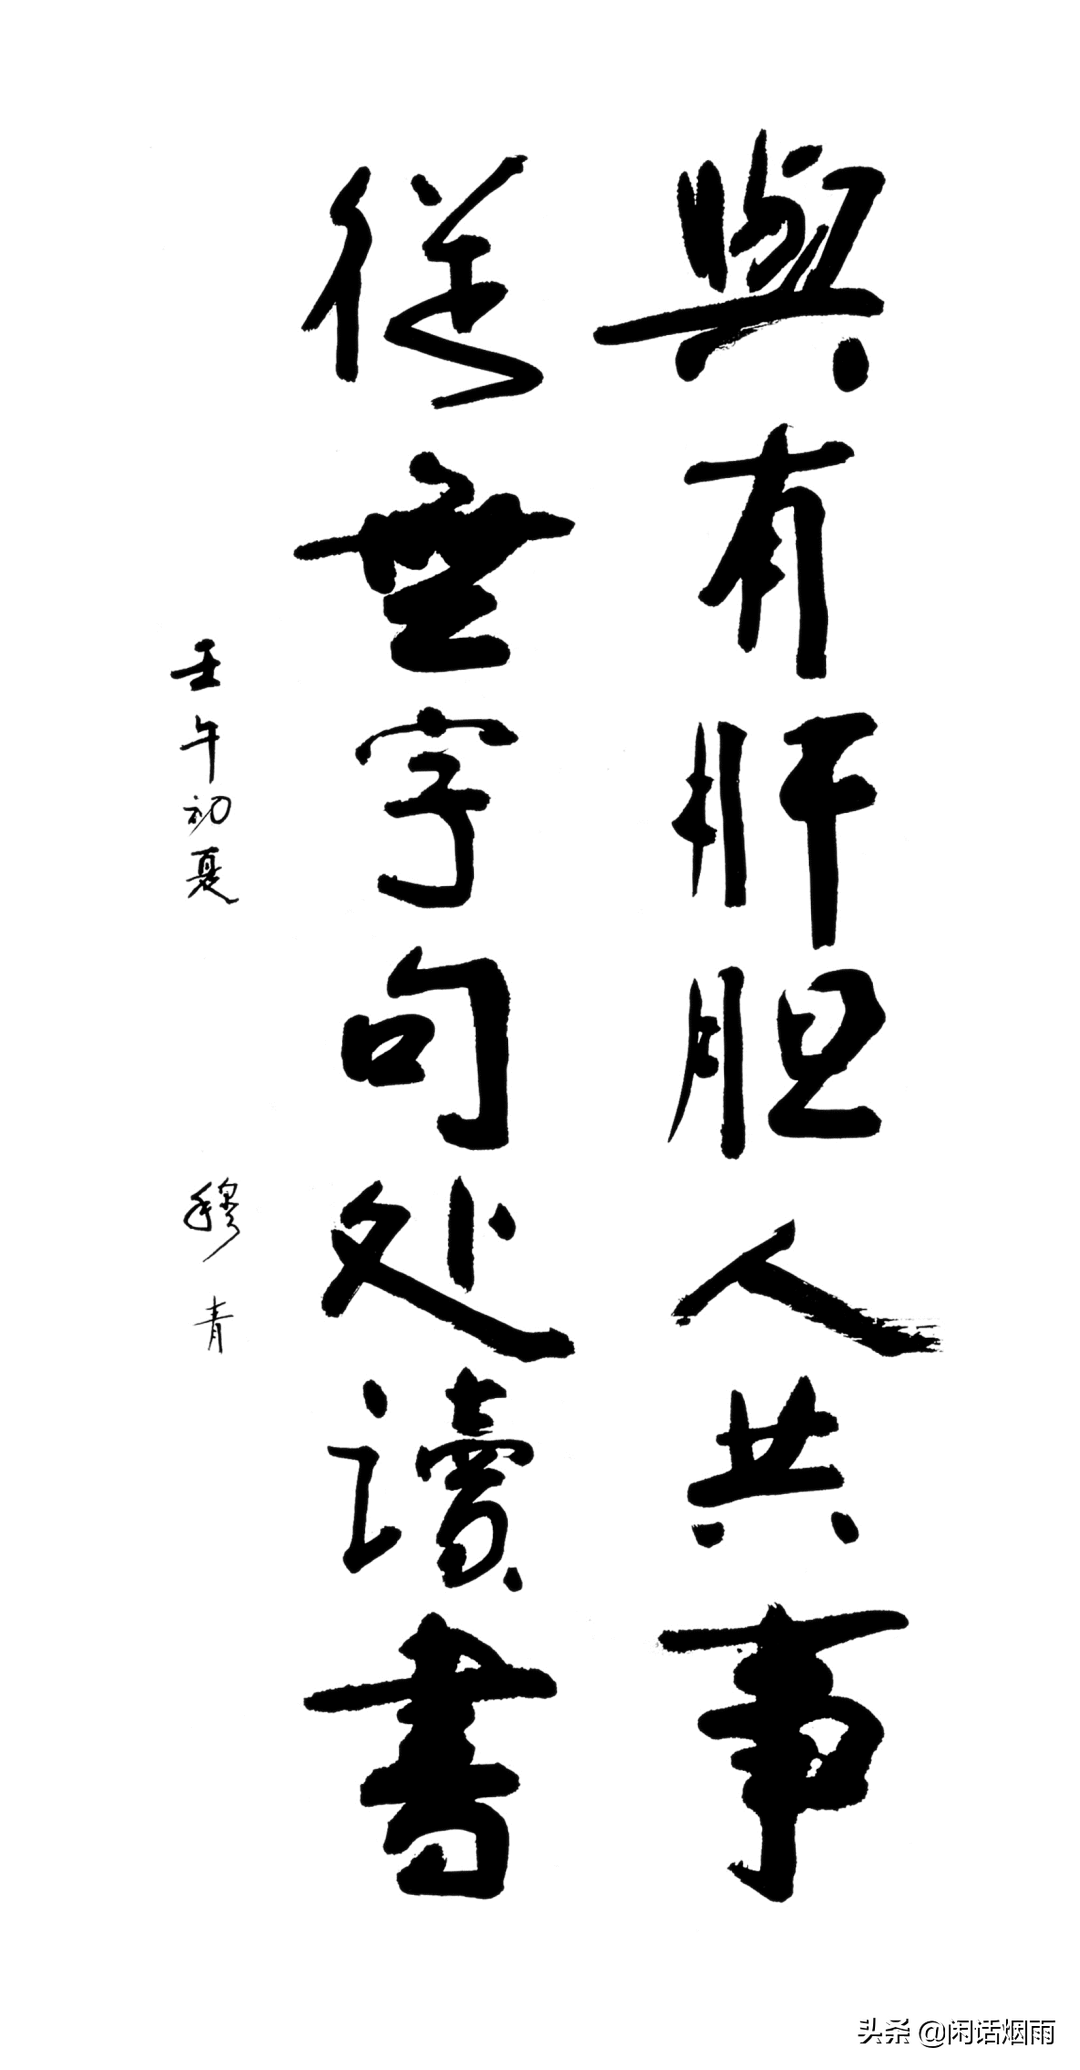 與有肝胆人共事
從無字句处讀書
壬午初夏 穆青
头条 @闲话烟雨